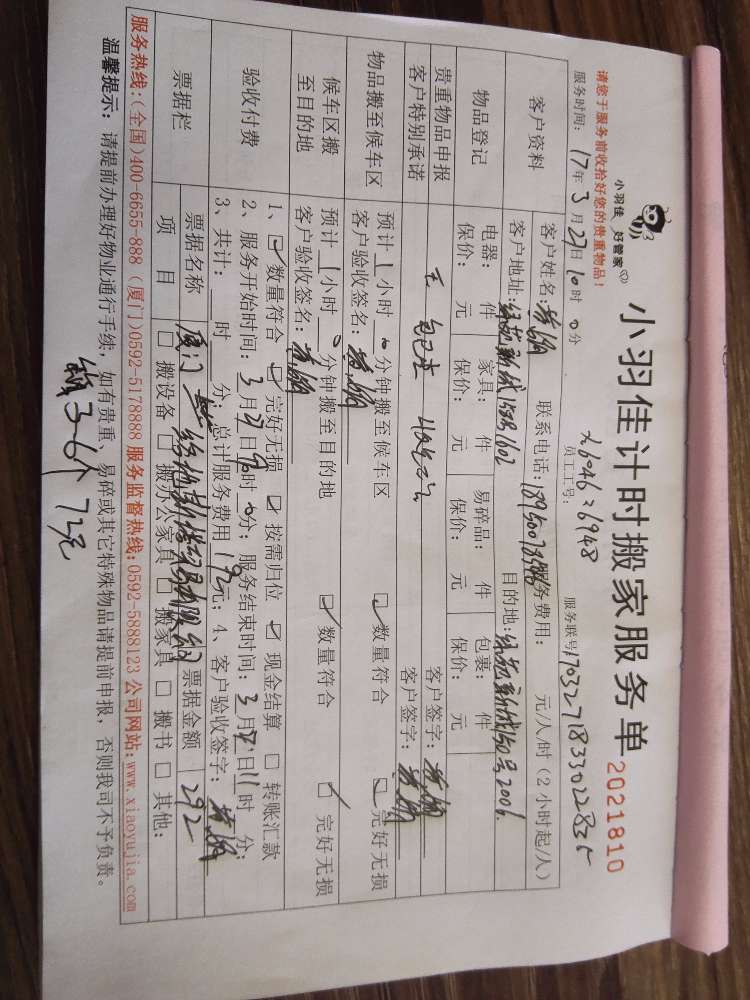 小羽佳 好管家
小羽佳计时搬家服务单
2021810
请您于服务前收拾好您的贵重物品！
员工工号：
服务联号1703271833022835
服务时间：17年3月27日10时0分
客户资料
客户姓名：
联系电话：
服务费用： 元/人/时（2小时起/人）
客户地址：
目的地：
物品登记
电器： 件
家具： 件
易碎品： 件
包裹： 件
保价： 元
保价： 元
保价： 元
保价： 元
贵重物品申报
客户签字：
客户特别承诺
客户签字：
物品搬至候车区
预计1小时0分钟搬至候车区
☑数量符合
☑完好无损
客户验收签名：
候车区搬至目的地
预计1小时0分钟搬至目的地
☑数量符合
☑完好无损
客户验收签名：
验收付费
1、☑数量符合 ☑完好无损 ☑按需归位 ☑现金结算 □转账汇款
2、服务开始时间：3月27日 时0分；服务结束时间：3月 日11时 分；
3、共计： 时 分，总计服务费用192元；4、客户验收签字：
票据栏
票据名称
票据金额
292
项目
□搬设备 □搬办公家具 □搬家具 □搬书 □其他：
服务热线：（全国）400-6655-888（厦门）0592-5178888 服务监督热线：0592-5888123 公司网站：www.xiaoyujia.com
温馨提示：请提前办理好物业通行手续，如有贵重、易碎或其它特殊物品请提前申报，否则我司不予负责。
36个 72元